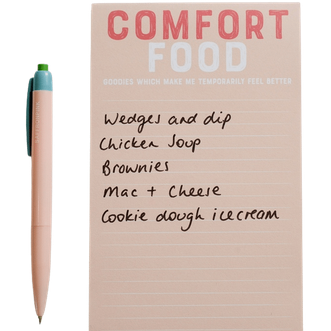 COMFORT
FOOD
GOODIES WHICH MAKE ME TEMPORARILY FEEL BETTER
Wedges and dip
Chicken Soup
Brownies
Mac + Cheese
Cookie dough icecream